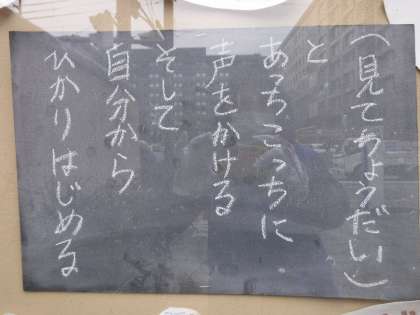 (見てちょうだい)
と
あっちこっちに
声をかける
そして
自分から
ひかりはじめる